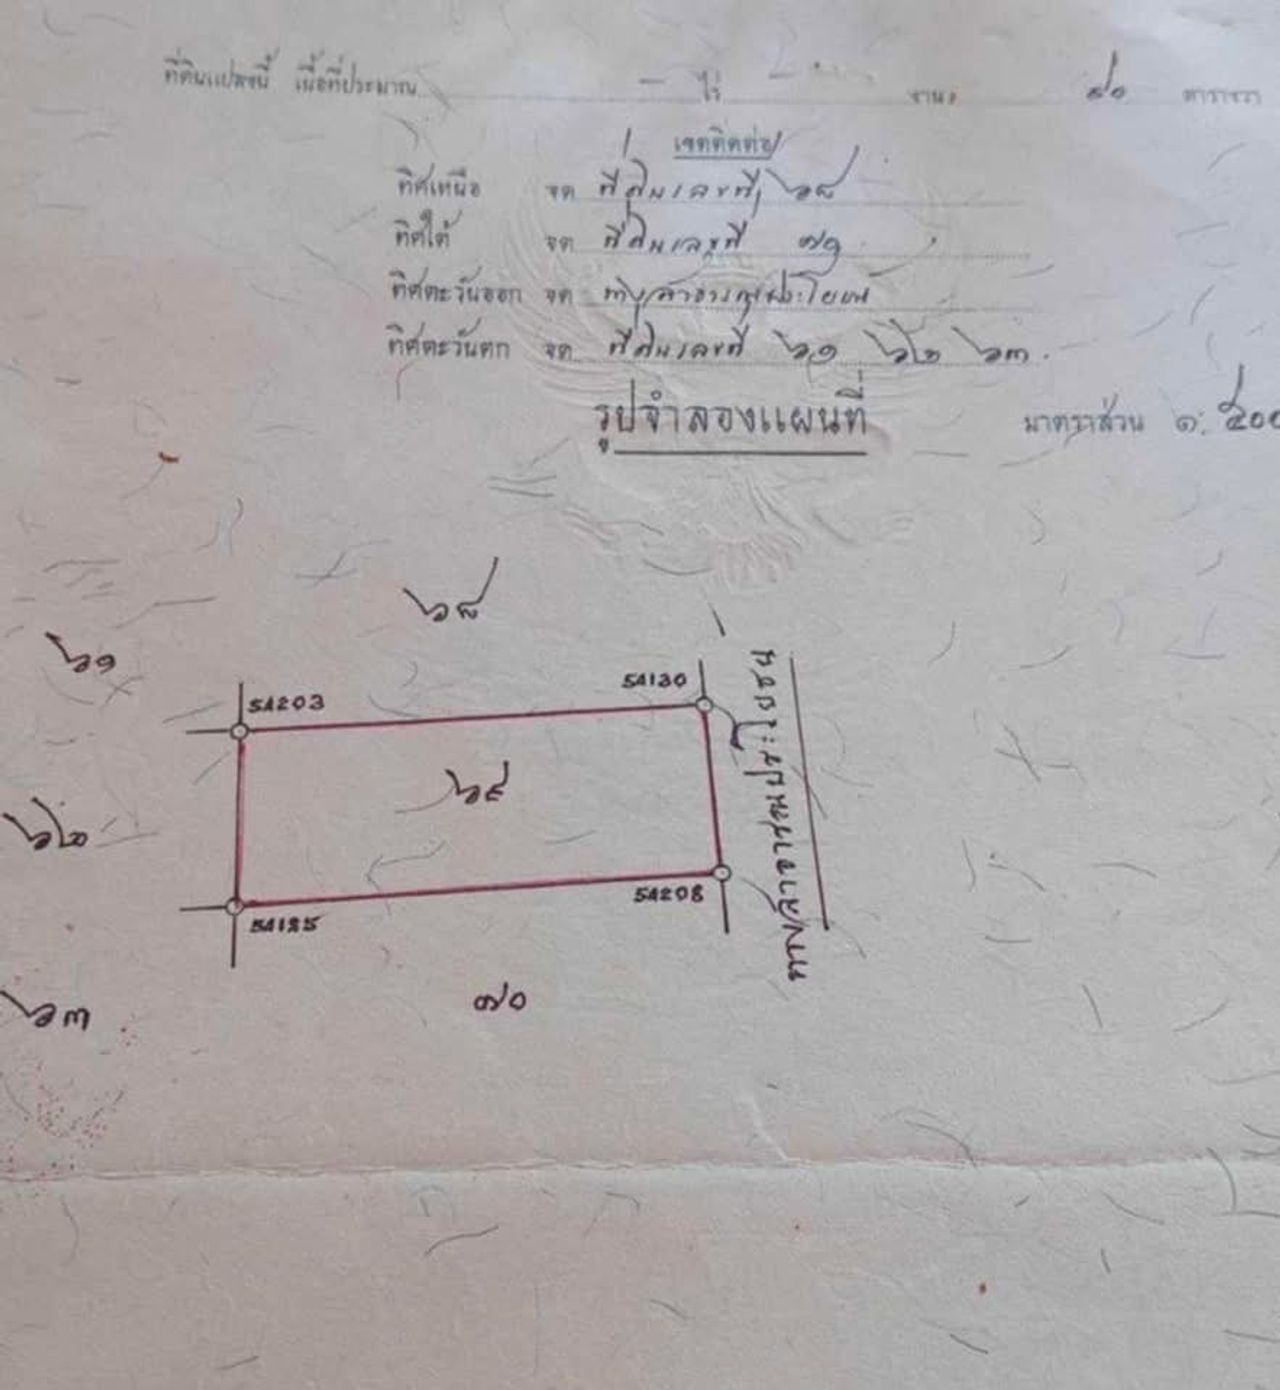 ที่ดินแปลงนี้ เนื้อที่ประมาณ - ไร่ - งาน ๘๐ ตารางวา
เขตติดต่อ
ทิศเหนือ จด ที่ดินเลขที่ ๖๘
ทิศใต้ จด ที่ดินเลขที่
ทิศตะวันออก จด ทางสาธารณประโยชน์
ทิศตะวันตก จด ที่ดินเลขที่ ๖๑ ๖๒ ๖๓
รูปจำลองแผนที่ มาตราส่วน ๑:๕๐๐
๖๘
๖๑
5A203 5A130
๖๙
๖๒
5A208
5A125
๖๓
๗๐
ทางสาธารณประโยชน์